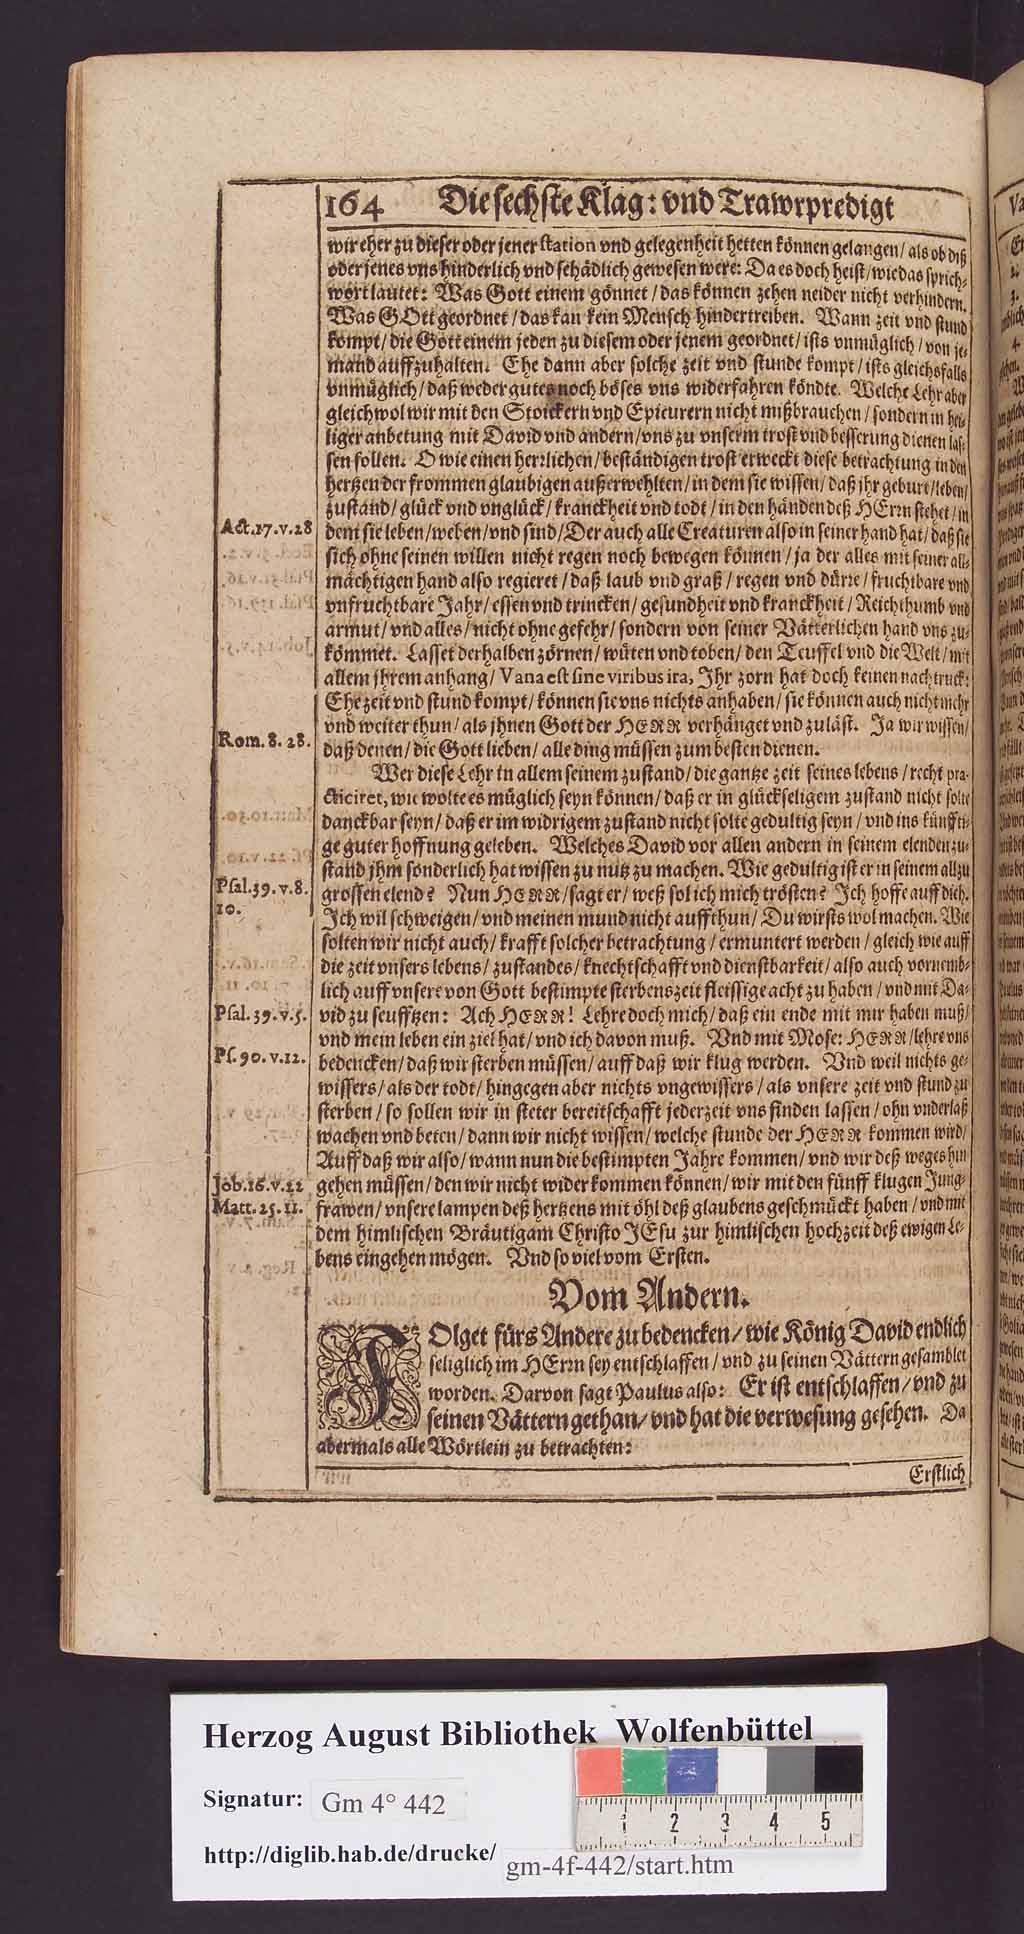 164 Die sechste Klag: vnd Trawrpredigt
wir eher zu dieser oder jener station vnd gelegenheit hetten können gelangen / als ob diß
oder jenes vns hinderlich vnd schädlich gewesen were: Da es doch heist / wie das sprich-
wort lautet: Was Gott einem gönnet / das können zehen neider nicht verhindern.
Was GOtt geordnet / das kan kein Mensch hindertreiben. Wann zeit vnd stund
kompt / die Gott einem jeden zu diesem oder jenem geordnet / ists vnmüglich / von je-
mand auffzuhalten. Ehe dann aber solche zeit vnd stunde kompt / ists gleichsfalls
vnmüglich / daß weder gutes noch böses vns widerfahren köndte. Welche Lehr aber
gleichwol wir mit den Stoickern vnd Epicurern nicht mißbrauchen / sondern in hei-
liger anbetung mit David vnd andern / vns zu vnserm trost vnd besserung dienen las-
sen sollen. O wie einen herrlichen / beständigen trost erweckt diese betrachtung in den
hertzen der frommen glaubigen außerwehlten / in dem sie wissen / daß jhr geburt / leben /
zustand / glück vnd vnglück / kranckheit vnd todt / in den händen deß HErrn stehet / in
Act. 17. v. 28
dem sie leben / weben / vnd sind / Der auch alle Creaturen also in seiner hand hat / daß sie
sich ohne seinen willen nicht regen noch bewegen können / ja der alles mit seiner all-
mächtigen hand also regieret / daß laub vnd graß / regen vnd dürre / fruchtbare vnd
vnfruchtbare Jahr / essen vnd trincken / gesundheit vnd kranckheit / Reichthumb vnd
armut / vnd alles / nicht ohne gefehr / sondern von seiner Vätterlichen hand vns zu-
kömmet. Lasset derhalben zörnen / wüten vnd toben / den Teuffel vnd die Welt / mit
allem jhrem anhang / Vana est sine viribus ira, Jhr zorn hat doch keinen nachtruck:
Ehe zeit vnd stund kompt / können sie vns nichts anhaben / sie können auch nicht mehr
vnd weiter thun / als jhnen Gott der HERR verhänget vnd zuläst. Ja wir wissen /
Rom. 8. 28.
daß denen / die Gott lieben / alle ding müssen zum besten dienen.
Wer diese Lehr in allem seinem zustand / die gantze zeit seines lebens / recht pra-
cticiret, wie wolte es müglich seyn können / daß er in glückseligem zustand nicht solte
danckbar seyn / daß er im widrigem zustand nicht solte gedultig seyn / vnd ins künffti-
ge guter hoffnung geleben. Welches David vor allen andern in seinem elenden zu-
stand jhm sonderlich hat wissen zu nutz zu machen. Wie gedultig ist er in seinem allzu
Psal. 39. v. 8.
10.
grossen elend? Nun HERR / sagt er / weß sol ich mich trösten? Ich hoffe auff dich.
Ich wil schweigen / vnd meinen mund nicht auffthun / Du wirsts wol machen. Wie
solten wir nicht auch / krafft solcher betrachtung / ermuntert werden / gleich wie auff
die zeit vnsers lebens / zustandes / knechtschafft vnd dienstbarkeit / also auch vornemb-
lich auff vnsere von Gott bestimpte sterbenszeit fleissige acht zu haben / vnd mit Da-
Psal. 39. v. 5.
vid zu seufftzen: Ach HERR! Lehre doch mich / daß ein ende mit mir haben muß /
vnd mein leben ein ziel hat / vnd ich davon muß. Vnd mit Mose: HERR / lehre vns
Ps. 90. v. 12.
bedencken / daß wir sterben müssen / auff daß wir klug werden. Vnd weil nichts ge-
wissers / als der todt / hingegen aber nichts vngewissers / als vnsere zeit vnd stund zu
sterben / so sollen wir in steter bereitschafft jederzeit vns finden lassen / ohn vnderlaß
wachen vnd beten / dann wir nicht wissen / welche stunde der HERR kommen wird /
Auff daß wir also / wann nun die bestimpten Jahre kommen / vnd wir deß weges hin
Job. 16. v. 22
gehen müssen / den wir nicht wider kommen können / wir mit den fünff klugen Jung-
Matt. 25. 11.
frawen / vnsere lampen deß hertzens mit öhl deß glaubens geschmückt haben / vnd mit
dem himlischen Bräutigam Christo JEsu zur himlischen hochzeit deß ewigen Le-
bens eingehen mögen. Vnd so viel vom Ersten.
Vom Andern.
FOlget fürs Andere zu bedencken / wie König David endlich
seliglich im HErrn sey entschlaffen / vnd zu seinen Vättern gesamblet
worden. Darvon sagt Paulus also: Er ist entschlaffen / vnd zu
seinen Vättern gethan / vnd hat die verwesung gesehen. Da
abermals alle Wörtlein zu betrachten:
Erstlich
Herzog August Bibliothek Wolfenbüttel
Signatur: Gm 4° 442
http://diglib.hab.de/drucke/ gm-4f-442/start.htm
1 2 3 4 5